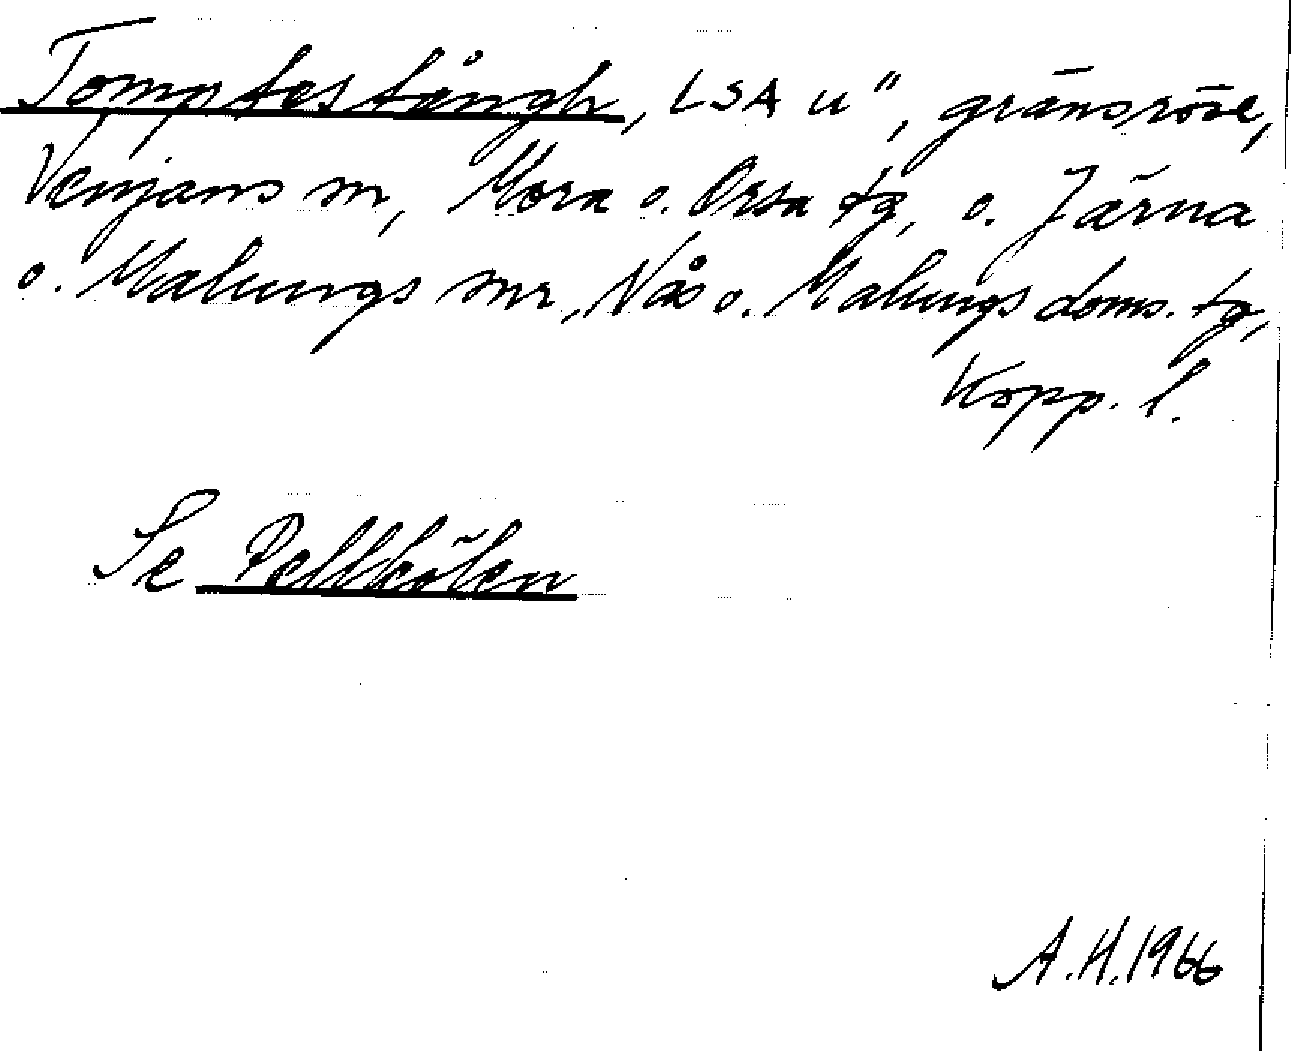 Tomptestångh, LSA u", gränsröse,
Venjans sn, Mora o. Orsa tg, o. Järna
o. Malungs snr, Nås o. Malungs doms. tg,
Kopp. l.
Se Pellkölen
A.H.1966